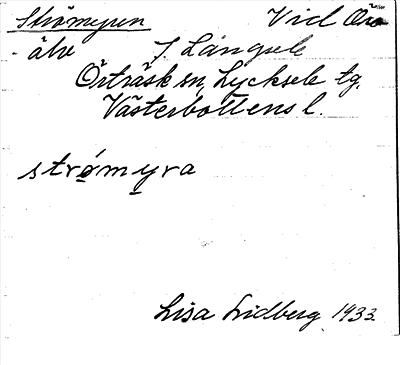 Strömyren Vid Öre
älv i Långsele
Örträsk sn, Lycksele tg.
Västerbottens l.
strömyra
Lisa Lidberg 1933.